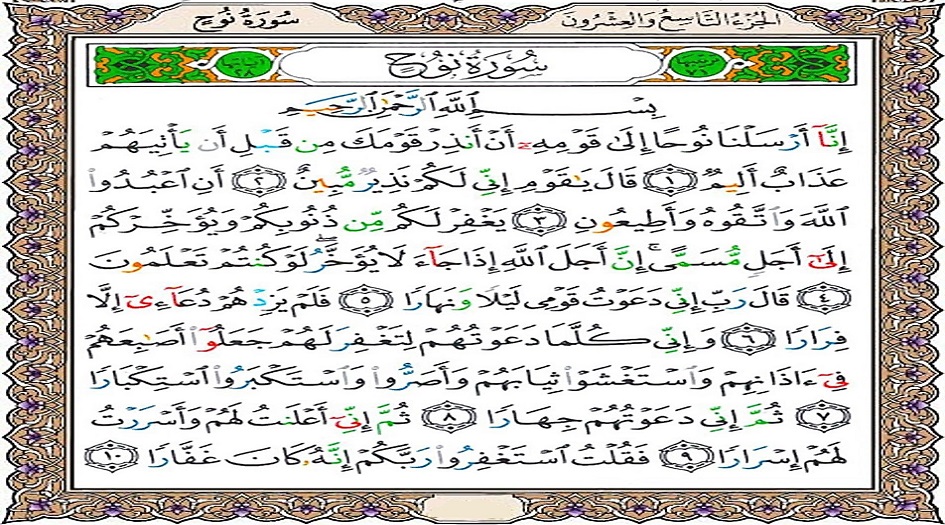 سُورَةُ نُوحٍ الجُزْءُ التَّاسِعُ وَالعِشْرُونَ
سُورَةُ نُوحٍ
بِسْمِ ٱللَّهِ ٱلرَّحْمَٰنِ ٱلرَّحِيمِ
إِنَّآ أَرْسَلْنَا نُوحًا إِلَىٰ قَوْمِهِۦٓ أَنْ أَنذِرْ قَوْمَكَ مِن قَبْلِ أَن يَأْتِيَهُمْ
عَذَابٌ أَلِيمٌ ١ قَالَ يَٰقَوْمِ إِنِّى لَكُمْ نَذِيرٌ مُّبِينٌ ٢ أَنِ ٱعْبُدُوا۟
ٱللَّهَ وَٱتَّقُوهُ وَأَطِيعُونِ ٣ يَغْفِرْ لَكُم مِّن ذُنُوبِكُمْ وَيُؤَخِّرْكُمْ
إِلَىٰٓ أَجَلٍ مُّسَمًّى ۚ إِنَّ أَجَلَ ٱللَّهِ إِذَا جَآءَ لَا يُؤَخَّرُ ۖ لَوْ كُنتُمْ تَعْلَمُونَ
٤ قَالَ رَبِّ إِنِّى دَعَوْتُ قَوْمِى لَيْلًا وَنَهَارًا ٥ فَلَمْ يَزِدْهُمْ دُعَآءِىٓ إِلَّا
فِرَارًا ٦ وَإِنِّى كُلَّمَا دَعَوْتُهُمْ لِتَغْفِرَ لَهُمْ جَعَلُوٓا۟ أَصَٰبِعَهُمْ
فِىٓ ءَاذَانِهِمْ وَٱسْتَغْشَوْا۟ ثِيَابَهُمْ وَأَصَرُّوا۟ وَٱسْتَكْبَرُوا۟ ٱسْتِكْبَارًا
٧ ثُمَّ إِنِّى دَعَوْتُهُمْ جِهَارًا ٨ ثُمَّ إِنِّىٓ أَعْلَنتُ لَهُمْ وَأَسْرَرْتُ
لَهُمْ إِسْرَارًا ٩ فَقُلْتُ ٱسْتَغْفِرُوا۟ رَبَّكُمْ إِنَّهُۥ كَانَ غَفَّارًا ١٠